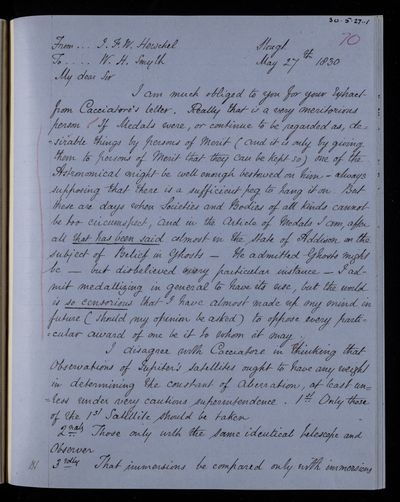 30·5·27··1
70
From ... J. F. W. Herschel Slough
To .... W. H. Smyth May 27th 1830
My dear Sir
I am much obliged to you for your Extract
from Cacciatore's letter. Really that is a very meritorious
person! If Medals were, or continue to be regarded as, de-
-sirable things by persons of Merit (and it is only by giving
them to persons of Merit that they can be kept so), one of the
Astronomical might be well enough bestowed on him - always
supposing that there is a sufficient peg to hang it on But
these are days when Societies and Bodies of all kinds cannot
be too circumspect, and in the Article of Medals I am, after
all that has been said almost in the State of Addison on the
subject of Belief in Ghosts - He admitted Ghosts might
be - but disbelieved every particular instance - I ad-
mit medallizing in general to have its use, but the world
is so censorious that I have almost made up my mind in
future (should my opinion be asked) to oppose every parti-
-cular award of one be it to whom it may
I disagree with Cacciatore in thinking that
Observations of Jupiter's Satellites ought to have any weight
in determining the constant of aberration, at least un-
-less under very cautious superintendence. 1st Only those
of the 1st Satellite should be taken
2ndly Those only with the same identical telescope and
Observer
3rdly That immersions be compared only with immersions